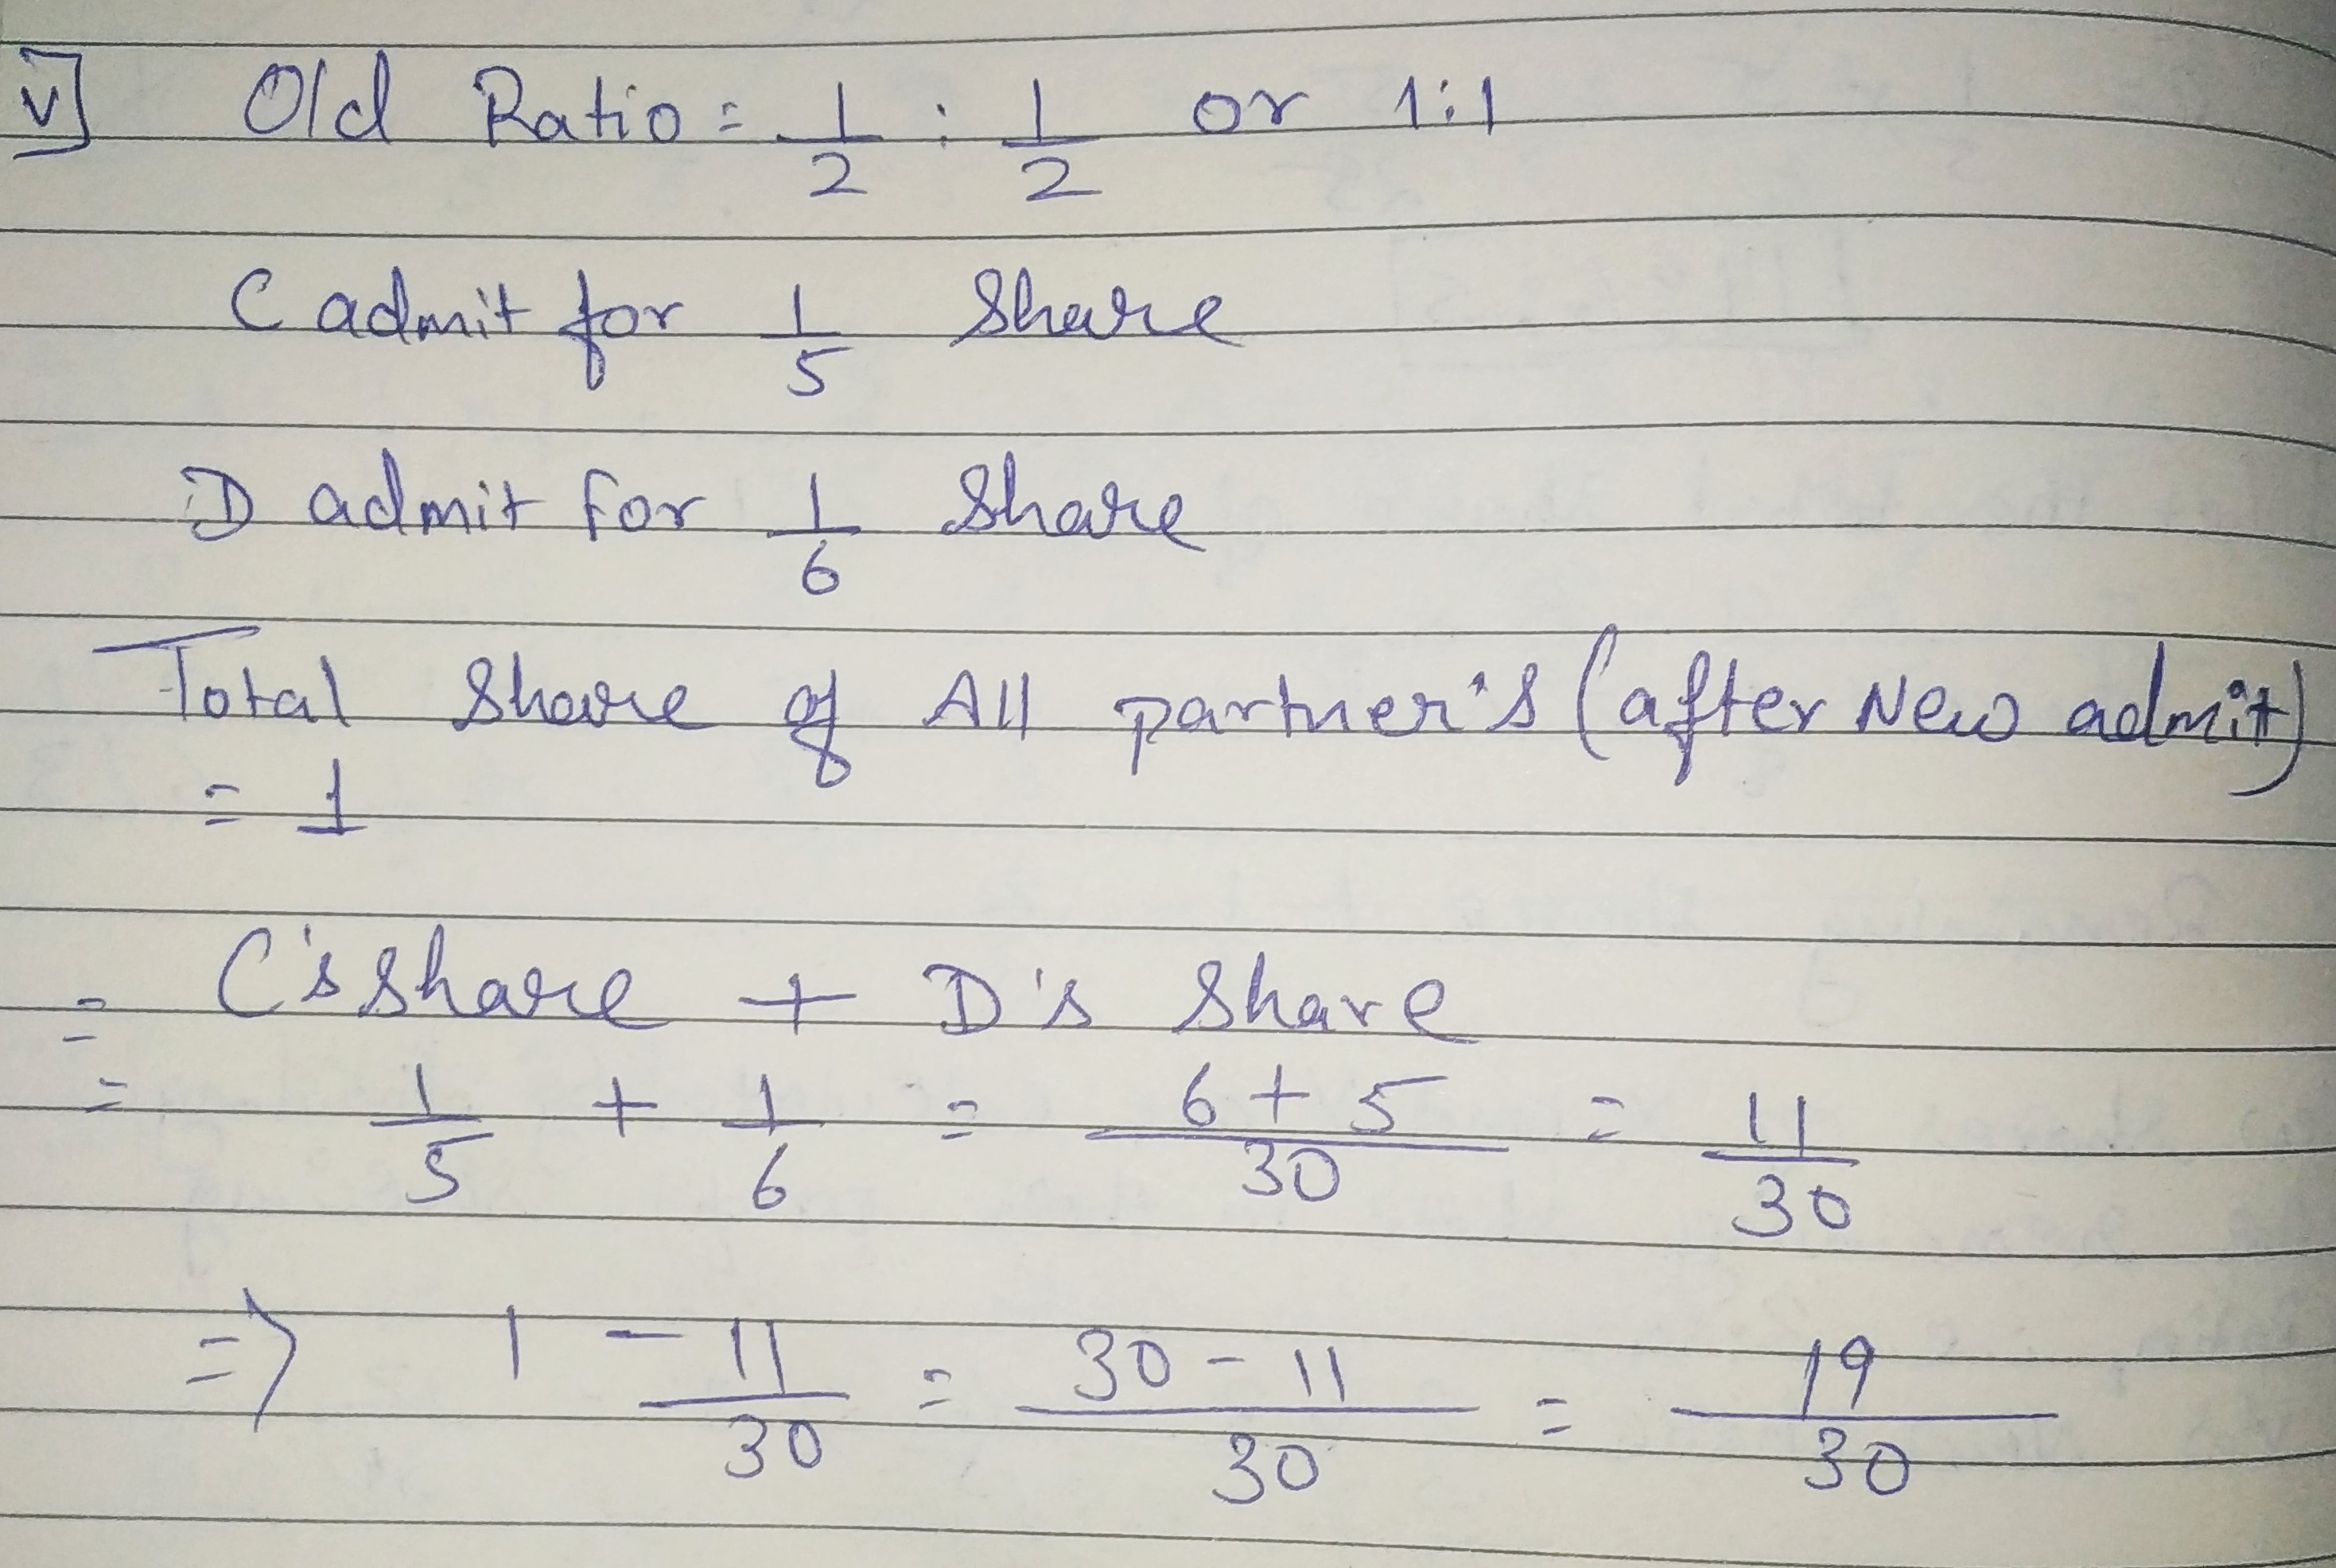 v] Old Ratio = 1/2 : 1/2 or 1:1
C admit for 1/5 Share
D admit for 1/6 Share
Total Share of All partner's (after New admit)
= 1
= C's Share + D's Share
= 1/5 + 1/6 = 6+5/30 = 11/30
=> 1 - 11/30 = 30-11/30 = 19/30